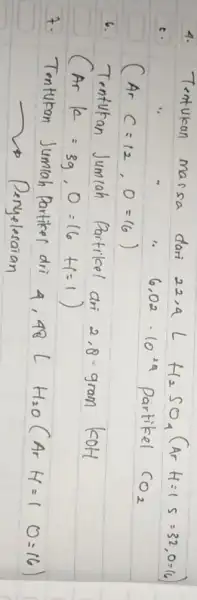 4. Tentukan massa dari 22,4 L H2SO4 (Ar H=1 S=32, O=16)
5. " " " 6,02 . 10^24 partikel CO2
(Ar C=12, O=16)
6. Tentukan jumlah Partikel dri 2,8 gram KOH
(Ar K = 39, O=16 H=1)
7. Tentukan jumlah Partikel dri 4,48 L H2O (Ar H=1 O=16)
→ Penyelesaian